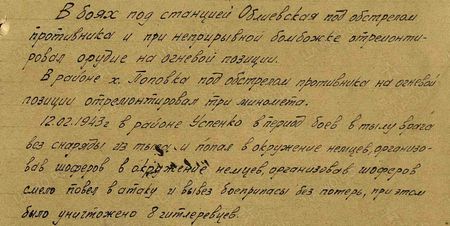 В боях под станцией Облиевская под обстрелом
противника и при неприрывной бомбожке отремонти-
ровал орудие на огневой позиции.
В районе х. Поповка под обстрелом противника на огневой
позиции отремонтировал три миномета.
12.02.1943г в районе Успенко в период боев в тылу врага
вез снаряды из тыла и попал в окружение немцев, организо-
вав шоферов в окружение немцев, организовав шоферов
смело повел в атаку и вывез боеприпасы без потерь, при этом
было уничтожено 8 гитлеревцев.